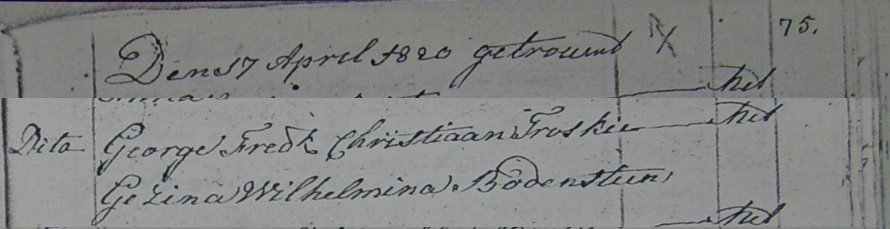 75.
Den 17 April 1820 getrouwd
Dito George Fredk Christiaan Troskie
Gezina Wilhelmina Bodenstein